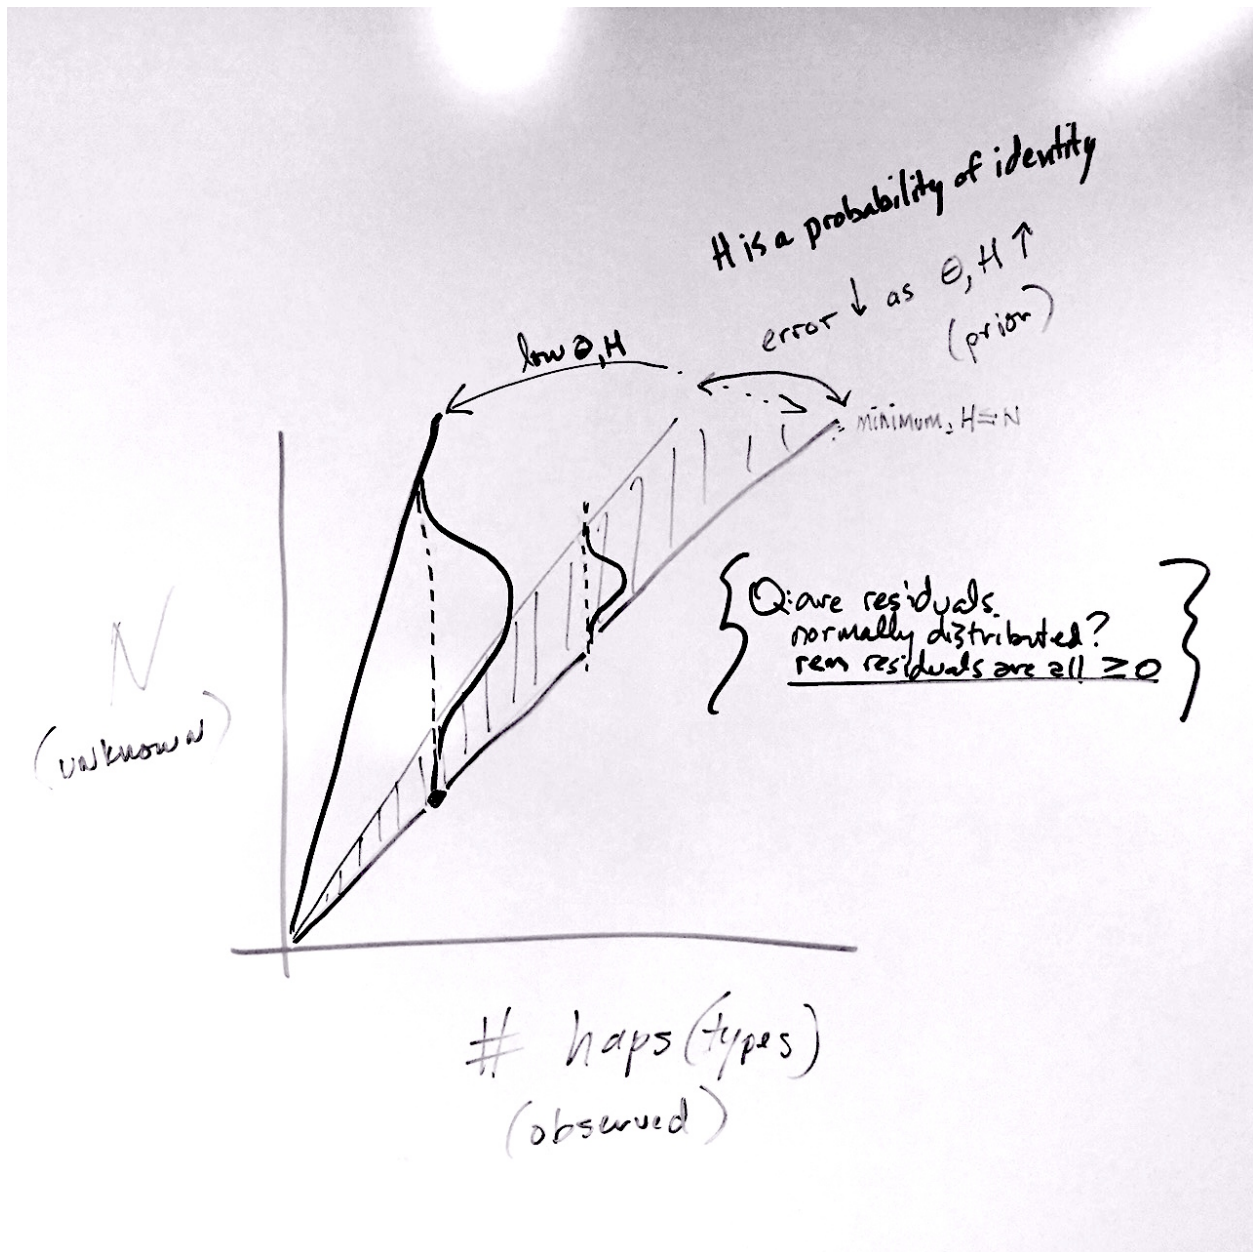 H is a probability of identity
error ↓ as θ, H ↑
(prior)
low θ, H
minimum, H = N
Q: are residuals
normally distributed?
rem residuals are all ≥ 0
N
(unknown)
# haps (types)
(observed)